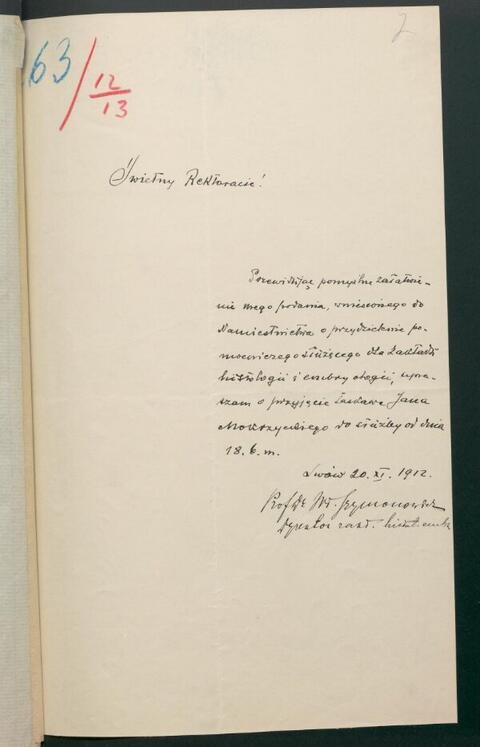 63/12/13
2
Świetny Rektoracie!
Przewidując pomyślne załatwie-
nie mego podania, wniesionego do
Namiestnictwa o przydzielenie po-
mocniczego służącego dla Zakładu
histologii i embryologii, upra-
szam o przyjęcie łaskawe Jana
do służby od dnia
18. b. m.
Lwów 20. XI. 1912.
Prof. Dr Wł. Szymonowicz
Dyrektor zakł. histol. embr.